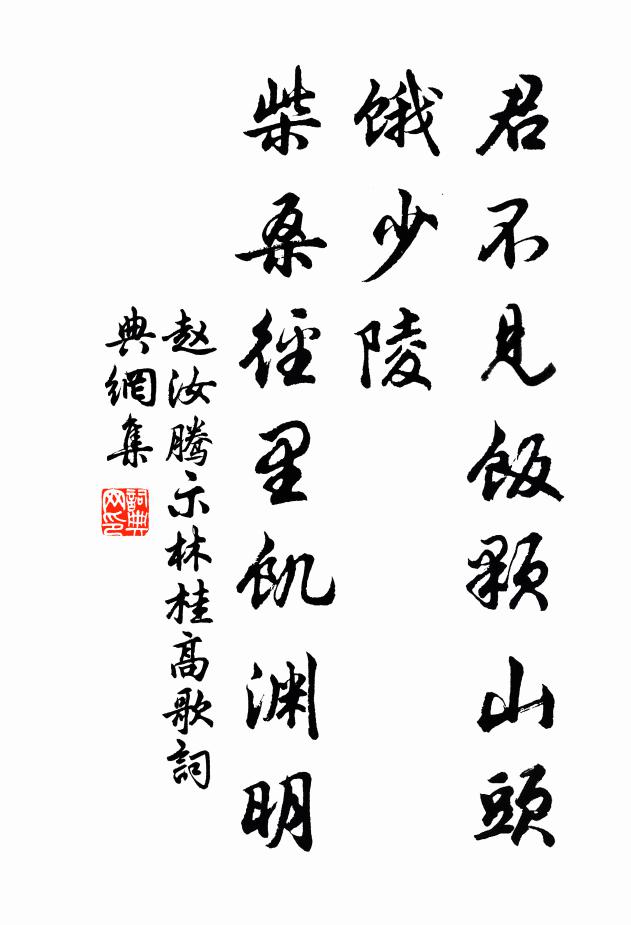 君不見飯顆山頭
餓少陵
柴桑徑里飢渊明
赵汝腾示林桂高歌詞
典網集
詞典网印